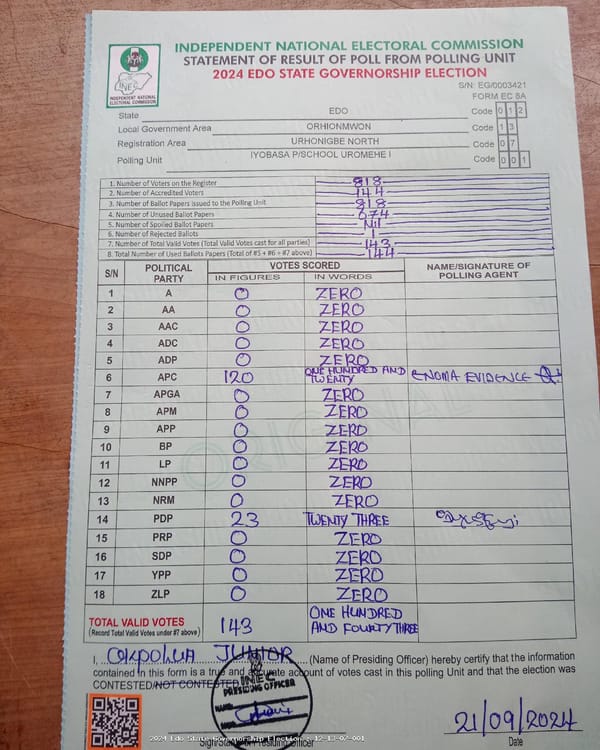 INDEPENDENT NATIONAL ELECTORAL COMMISSION
STATEMENT OF RESULT OF POLL FROM POLLING UNIT
2024 EDO STATE GOVERNORSHIP ELECTION
INEC
INDEPENDENT NATIONAL
ELECTORAL COMMISSION
S/N: EG/0003421
FORM EC 8A
State EDO Code 0 1 2
Local Government Area ORHIONMWON Code 1 3
Registration Area URHONIGBE NORTH Code 0 7
Polling Unit IYOBASA P/SCHOOL UROMEHE I Code 0 0 1
1. Number of Voters on the Register 818
2. Number of Accredited Voters 144
3. Number of Ballot Papers issued to the Polling Unit 818
4. Number of Unused Ballot Papers 674
5. Number of Spoiled Ballot Papers Nil
6. Number of Rejected Ballots 1
7. Number of Total Valid Votes (Total Valid Votes cast for all parties) 143
8. Total Number of Used Ballots Papers (Total of #5 + #6 + #7 above) 144
S/N POLITICAL PARTY VOTES SCORED NAME/SIGNATURE OF POLLING AGENT
IN FIGURES IN WORDS
1 A 0 ZERO
2 AA 0 ZERO
3 AAC 0 ZERO
4 ADC 0 ZERO
5 ADP 0 ZERO
6 APC 120 ONE HUNDRED AND TWENTY ENOMA EVIDENCE
7 APGA 0 ZERO
8 APM 0 ZERO
9 APP 0 ZERO
10 BP 0 ZERO
11 LP 0 ZERO
12 NNPP 0 ZERO
13 NRM 0 ZERO
14 PDP 23 TWENTY THREE
15 PRP 0 ZERO
16 SDP 0 ZERO
17 YPP 0 ZERO
18 ZLP 0 ZERO
ORIGINAL
TOTAL VALID VOTES 143 ONE HUNDRED AND FOURTY THREE
(Record Total Valid Votes under #7 above)
I, JUNIOR (Name of Presiding Officer) hereby certify that the information
contained in this form is a true and accurate account of votes cast in this polling Unit and that the election was
CONTESTED/NOT CONTESTED
INEC
PRESIDING OFFICER
NAME
21/09/2024
Date
2024 Edo State Governorship Election - 12-13-07-001